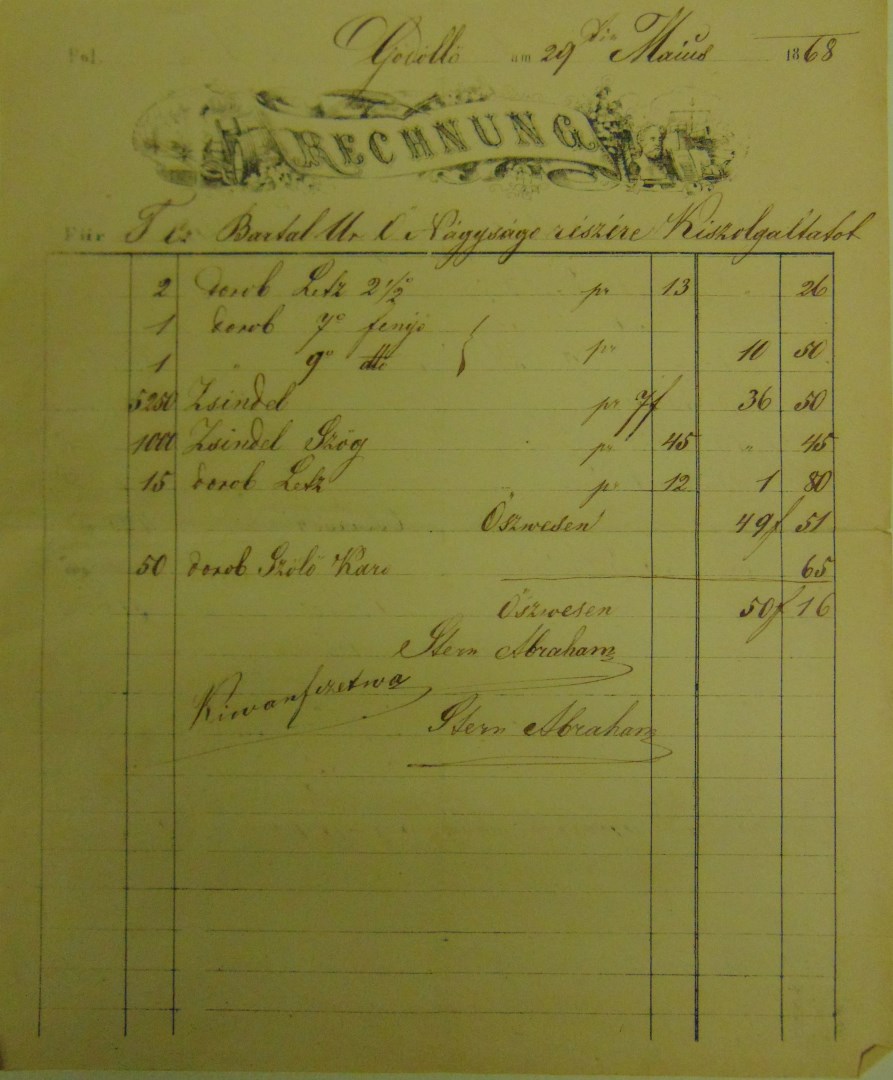 Fol.
Gödöllő am 29 Máius 1868
RECHNUNG
Für T Bartal Ur Ő Nágysága részére Kiszolgaltatot
2 darab Letz 2 1/2" pr 13 26
1 darab 7" fenyö
1 " 9" dtto pr 10 50
5250 Zsindel pr 7f 36 50
1000 Zsindel Szög pr 45 " 45
15 darob Letz " pr 12 1 80
Öszwesen 49f 51
50 darob Szölö Karo 65
Öszwesen 50f 16
Stern Abraham
Kiwanfizetwa
Stern Abraham